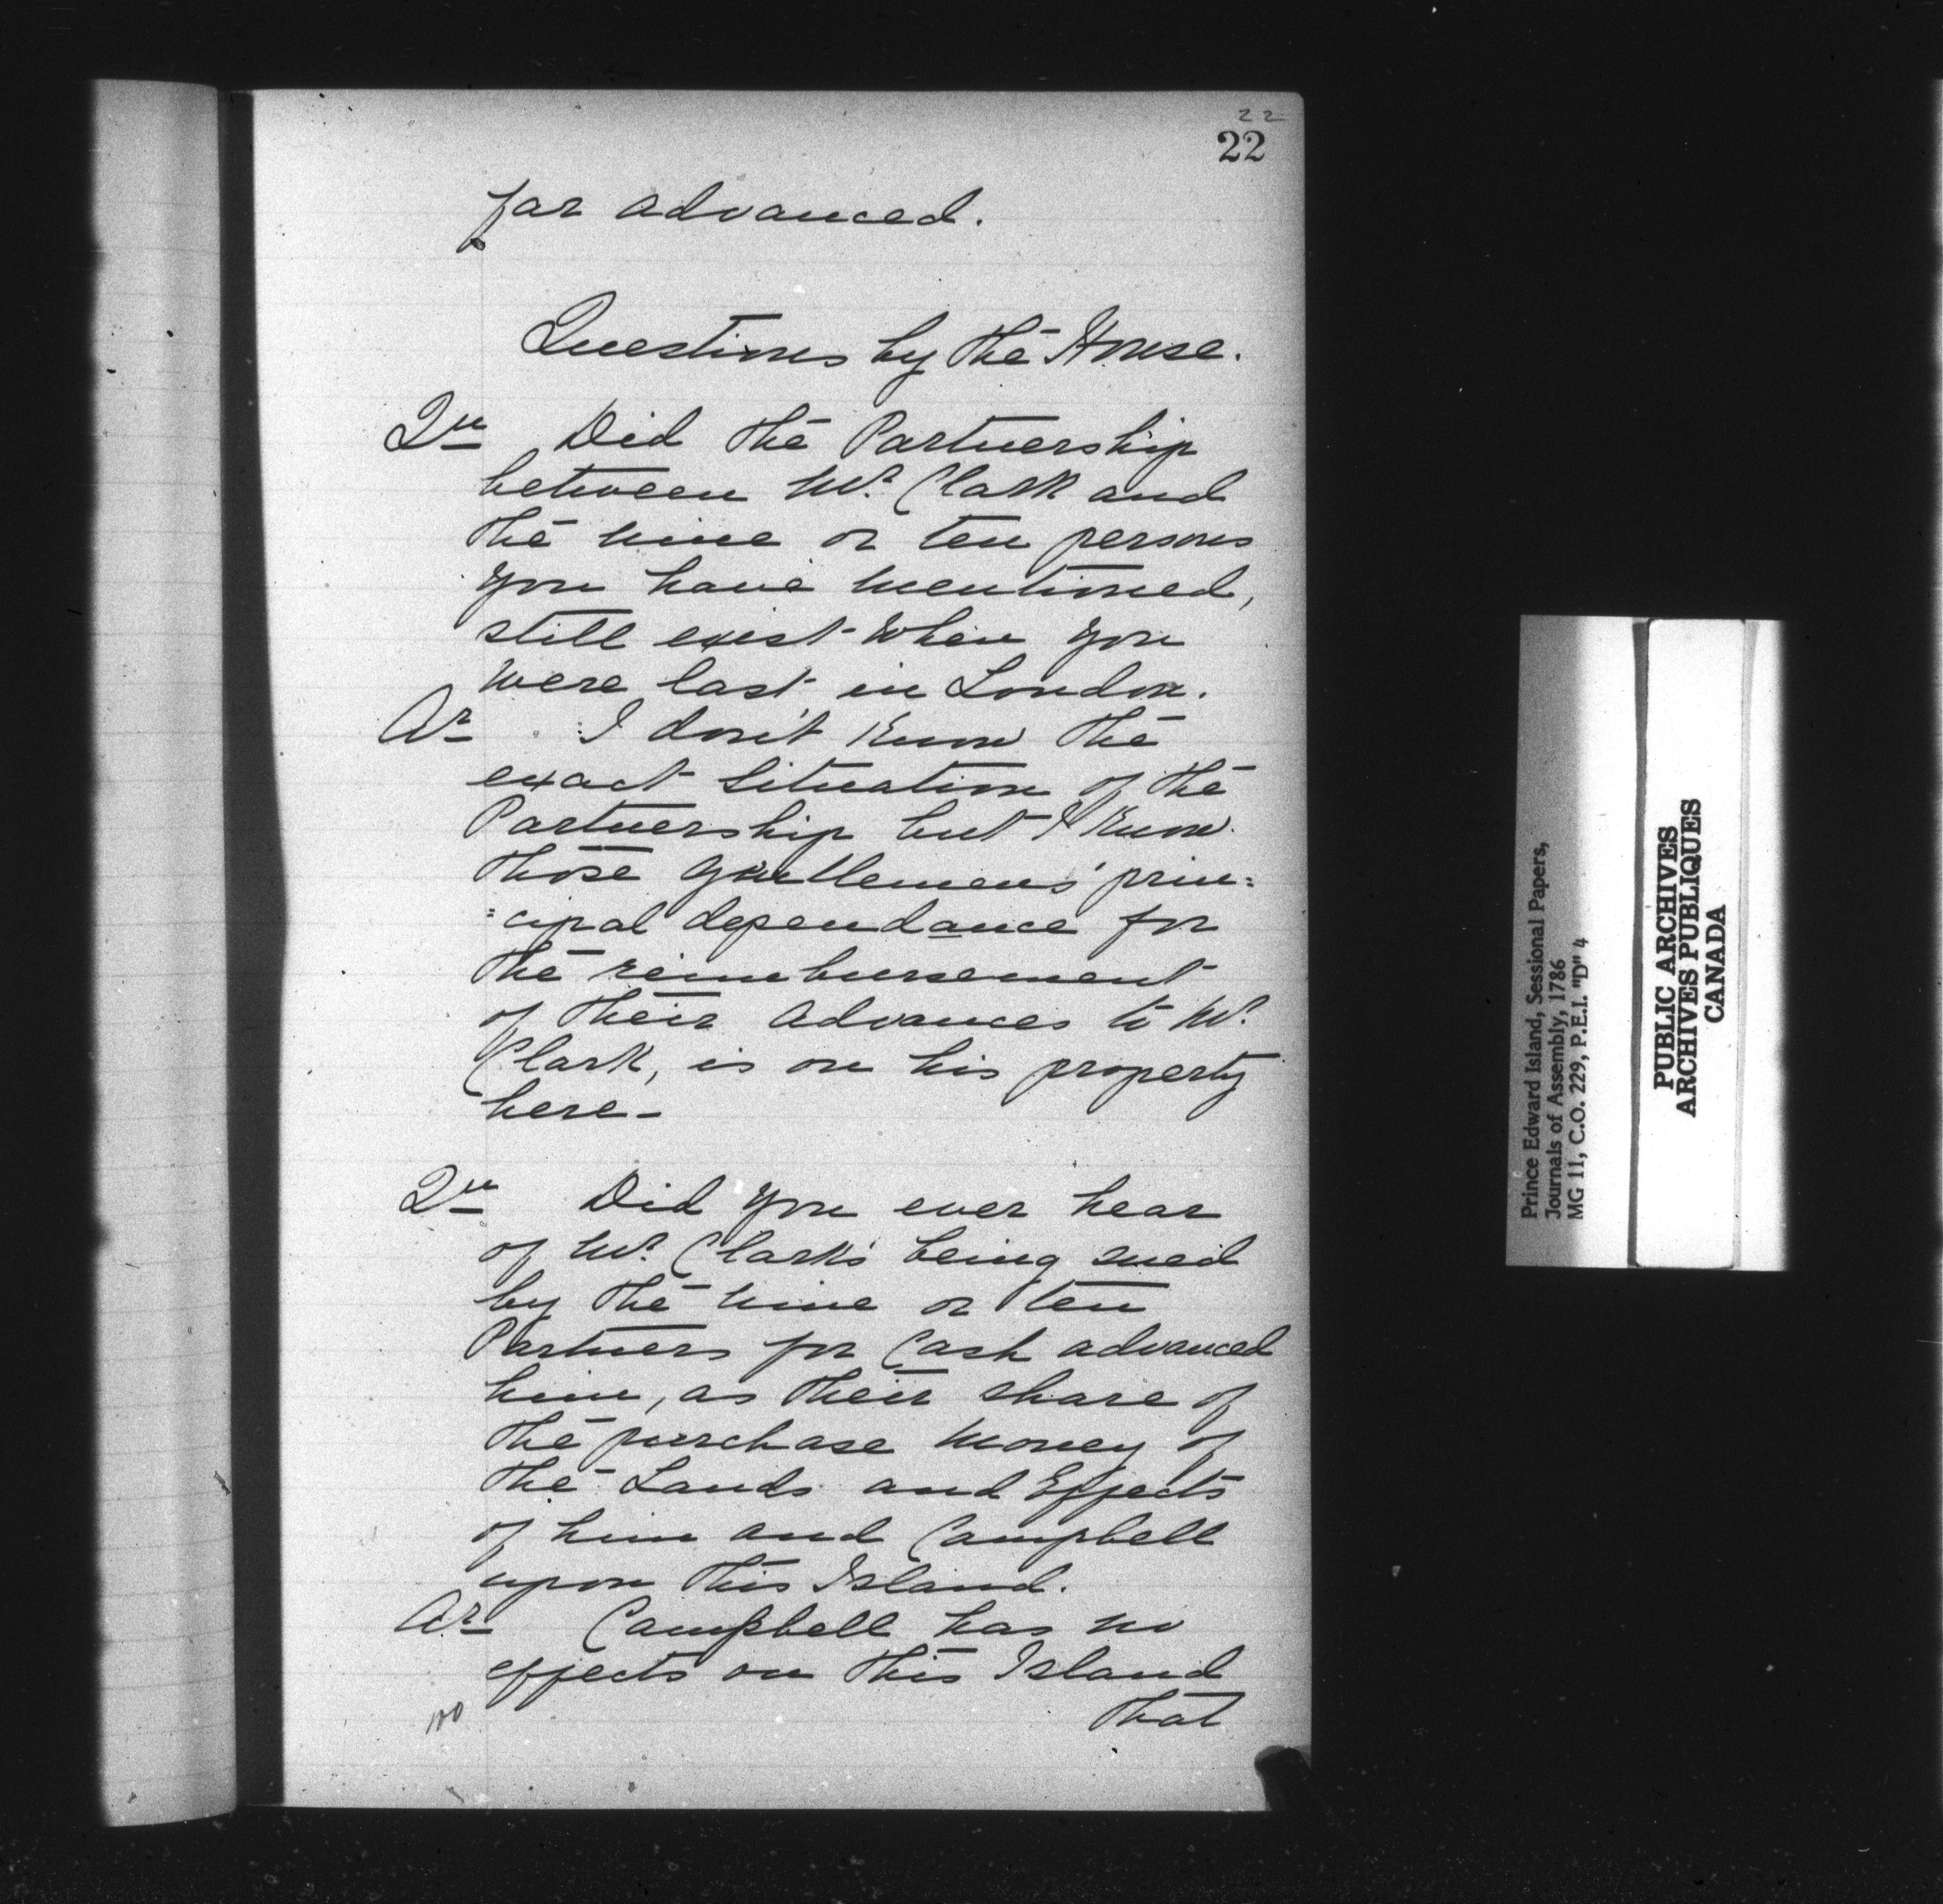 22
22
far advanced.
Questions by the House.
Qu Did the Partnership
between Mr. Clark and
the nine or ten persons
you have mentioned,
still exist when you
were last in London.
Ar I don't know the
exact situation of the
Partnership but I know
those gentlemens' prin=
=cipal dependance for
the reimbursement
of their advances to Mr.
Clark, is on his property
here-
Qu Did you ever hear
of Mr. Clark's being sued
by the nine or ten
Partners for Cash advanced
him, as their share of
the purchase money of
the Lands and Effects
of him and Campbell
upon this Island.
Ar Campbell has no
effects on this Island
that
Prince Edward Island, Sessional Papers,
Journals of Assembly, 1786
MG 11, C.O. 229, P.E.I. "D" 4
PUBLIC ARCHIVES
ARCHIVES PUBLIQUES
CANADA